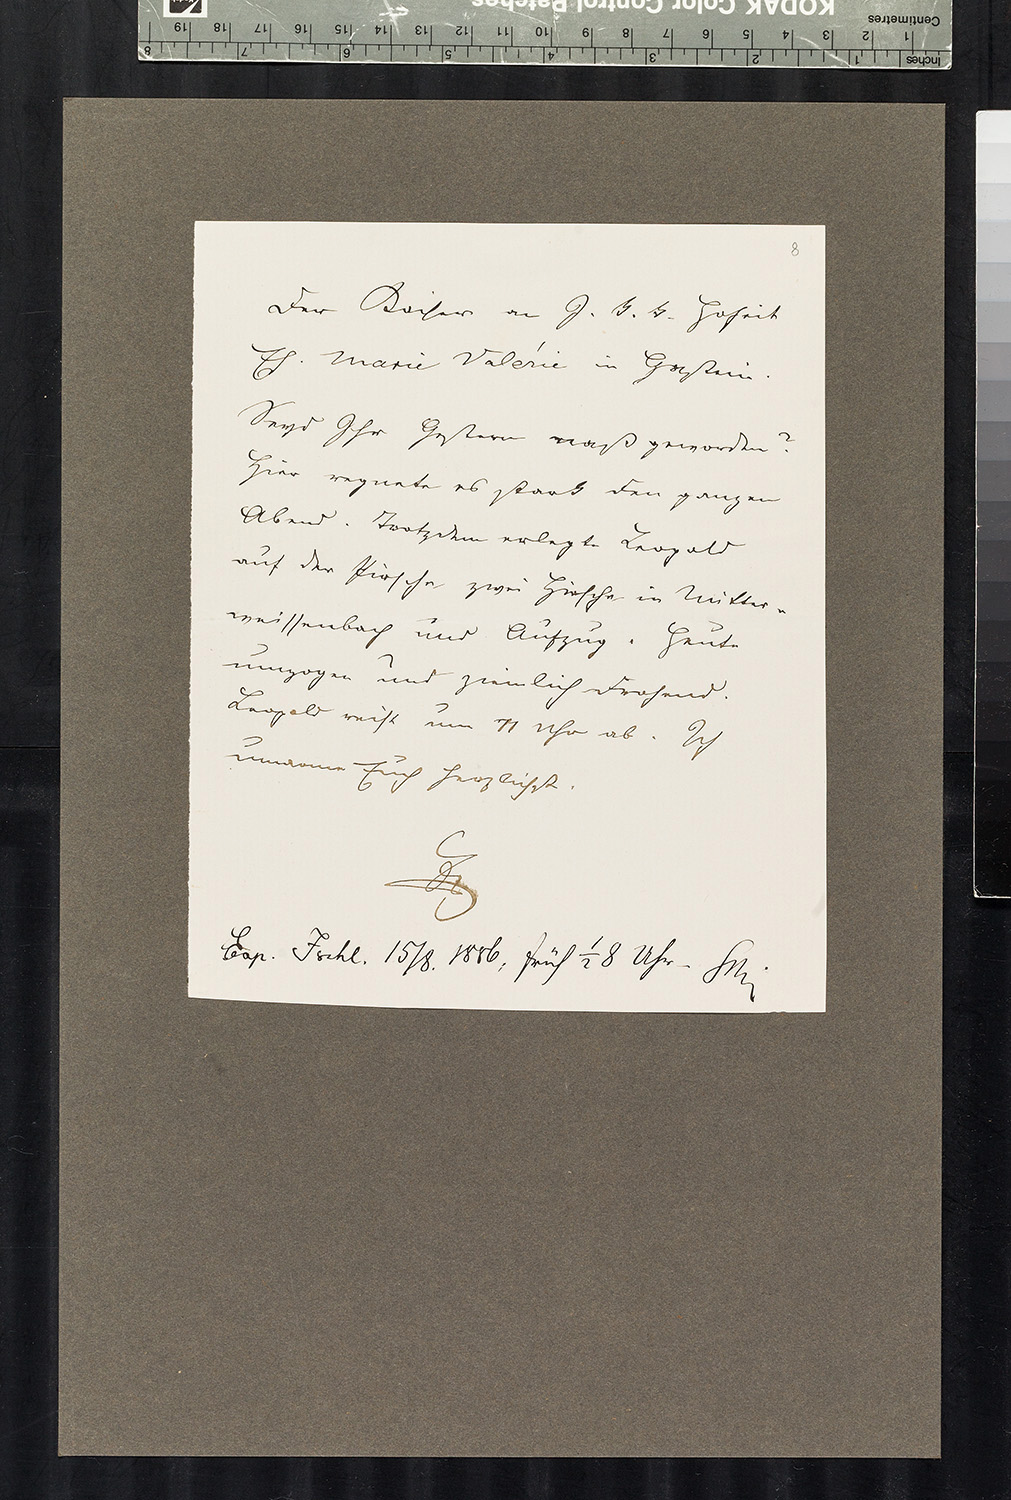 KODAK Color Control Patches
Centimetres
1 2 3 4 5 6 7 8 9 10 11 12 13 14 15 16 17 18 19
Inches 1 2 3 4 5 6 7 8
8
Der Kaiser an I. k. k. Hoheit
Eh. Marie Valérie in Gastein.
Seyd Ihr Gestern naß geworden?
Hier regnete es stark den ganzen
Abend. Trotzdem erlegte Leopold
auf der Pirsche zwei Hirsche in Mitter-
weissenbach und Aufzug. Heute
umzogen und ziemlich drohend.
Leopold reist um 11 Uhr ab. Ich
umarme Euch herzlichst.
Exp. Ischl. 15/8. 1886, früh ½ 8 Uhr